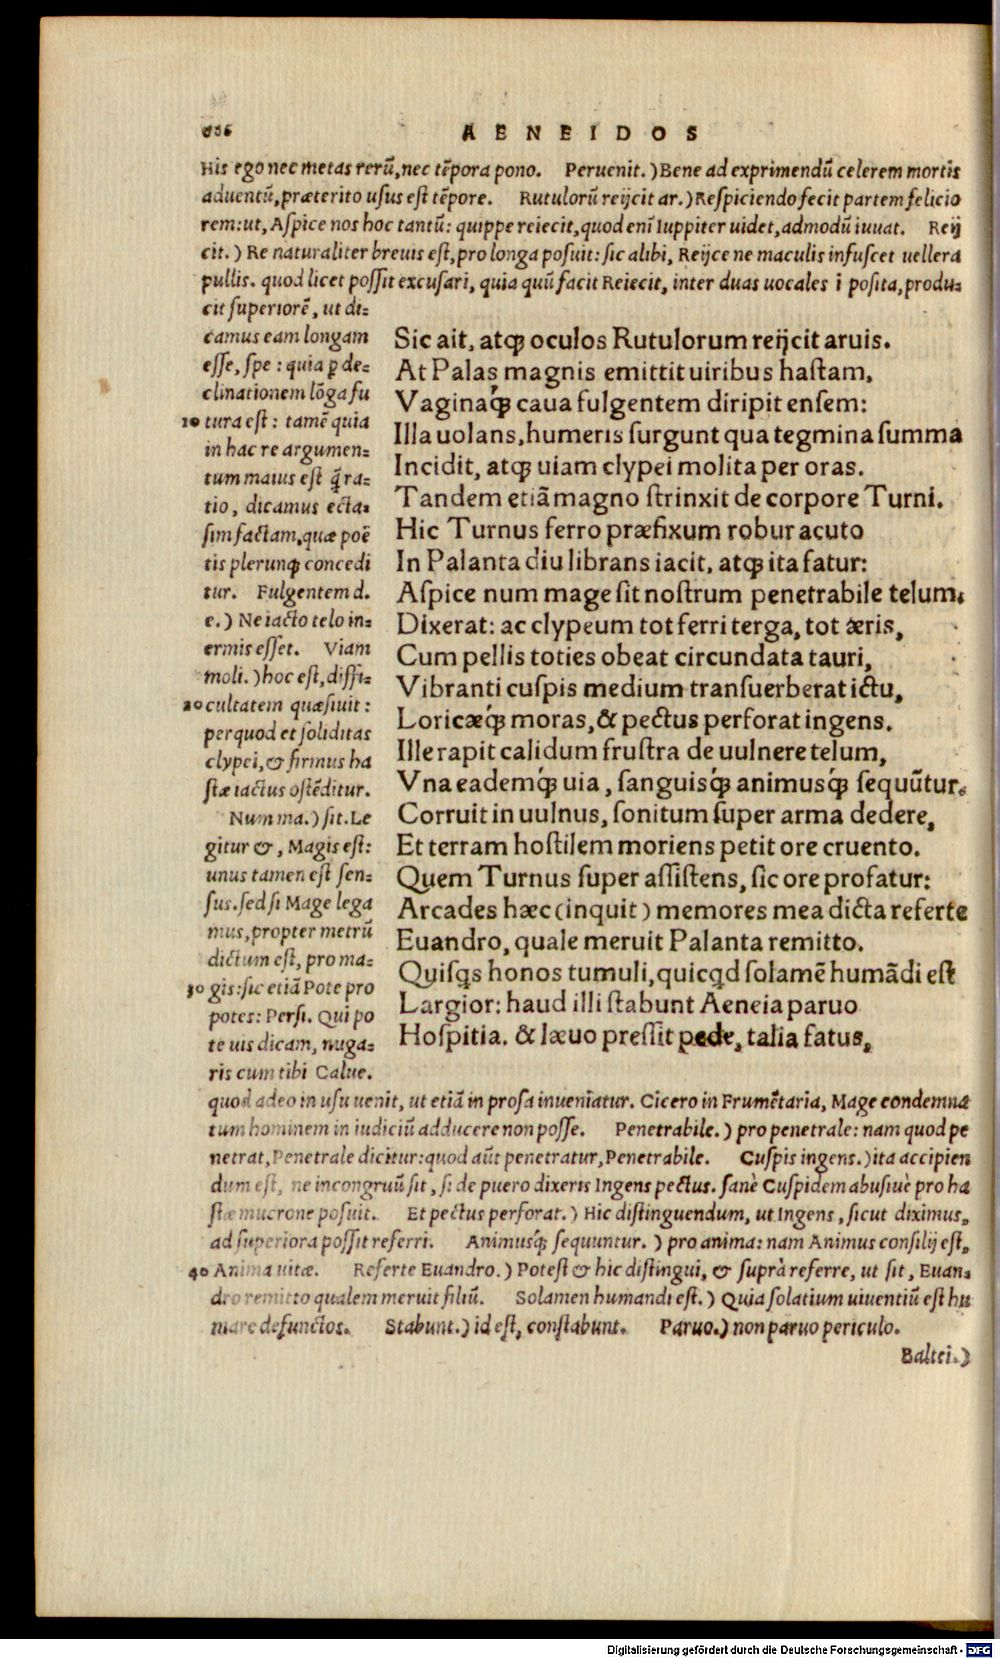 656
AENEIDOS
His ego nec metas rerũ, nec tẽpora pono. Peruenit.) Bene ad exprimendũ celerem mortis
aduentũ, præterito usus est tẽpore. Rutulorũ reijcit ar.) Respiciendo fecit partem felicio
rem: ut, Aspice nos hoc tantũ: quippe reiecit, quod enĩ Iuppiter uidet, admodũ iuuat. Reij
cit.) Re naturaliter breuis est, pro longa posuit: sic alibi, Reijce ne maculis infuscet uellera
pullis. quod licet possit excusari, quia quũ facit Reiecit, inter duas uocales i posita, produ-
cit superiorẽ, ut di-
camus eam longam
esse, spe: quia p̱ de-
clinationem lõga fu
10 tura est: tamẽ quia
in hac re argumen-
tum maius est q̃ ra-
tio, dicamus ecta-
sim factam, quæ poẽ
tis plerunq; concedi
tur. Fulgentem d.
e.) Ne iacto telo in-
ermis esset. Viam
moli.) hoc est, diffi-
20 cultatem quæsiuit:
per quod et soliditas
clypei, & firmus ha
stæ iactus ostẽditur.
Num ma.) sit. Le
gitur &, Magis est:
unus tamen est sen-
sus. sed si Mage lega
mus, propter metrũ
dictum est, pro ma-
30 gis: sic etiã Pote pro
potes: Persi. Qui po
te uis dicam, nuga-
ris cum tibi Calue.
Sic ait, atq; oculos Rutulorum reijcit aruis.
At Palas magnis emittit uiribus hastam,
Vaginaq́; caua fulgentem diripit ensem:
Illa uolans, humeris surgunt qua tegmina summa
Incidit, atq; uiam clypei molita per oras.
Tandem etiã magno strinxit de corpore Turni.
Hic Turnus ferro præfixum robur acuto
In Palanta diu librans iacit, atq; ita fatur:
Aspice num mage sit nostrum penetrabile telum.
Dixerat: ac clypeum tot ferri terga, tot æris,
Cum pellis toties obeat circundata tauri,
Vibranti cuspis medium transuerberat ictu,
Loricæq́; moras, & pectus perforat ingens.
Ille rapit calidum frustra de uulnere telum,
Vna eademq́; uia, sanguisq́; animusq́; sequũtur.
Corruit in uulnus, sonitum super arma dedere,
Et terram hostilem moriens petit ore cruento.
Quem Turnus super assistens, sic ore profatur:
Arcades hæc (inquit) memores mea dicta referte
Euandro, quale meruit Palanta remitto.
Quisq̃s honos tumuli, quicq̃d solamẽ humãdi est
Largior: haud illi stabunt Aeneia paruo
Hospitia. & læuo pressit pede, talia fatus,
quod adeo in usu uenit, ut etiã in prosa inueniatur. Cicero in Frumẽtaria, Mage condemna
tum hominem in iudiciũ adducere non posse. Penetrabile.) pro penetrale: nam quod pe
netrat, Penetrale dicitur: quod aũt penetratur, Penetrabile. Cuspis ingens.) ita accipien
dum est, ne incongruũ sit, si de puero dixeris Ingens pectus. sanè Cuspidem abusiuè pro ha
stæ mucrone posuit. Et pectus perforat.) Hic distinguendum, ut Ingens, sicut diximus,
ad superiora possit referri. Animusq́; sequuntur.) pro anima: nam Animus consilij est,
40 Anima uitæ. Referte Euandro.) Potest & hic distingui, & suprà referre, ut sit, Euan-
dro remitto qualem meruit filiũ. Solamen humandi est.) Quia solatium uiuentiũ est hu
mare defunctos. Stabunt.) id est, constabunt. Paruo.) non paruo periculo.
Baltei.)
Digitalisierung gefördert durch die Deutsche Forschungsgemeinschaft - DFG